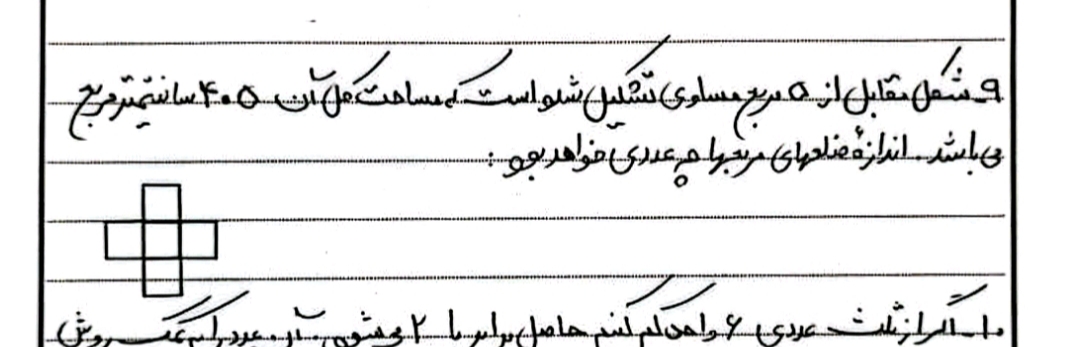 ۹_ شکل مقابل از ۵ مربع مساوی تشکیل شده است که مساحت کل آن ۴۰۵ سانتیمترمربع
می باشد. اندازهٔ ضلعهای مربعها چه عددی خواهد بود:
۱۰_ اگر از ثلث عددی ۶ واحد کم کنیم حاصل برابر با ۲ می شود. آن عدد را به روش